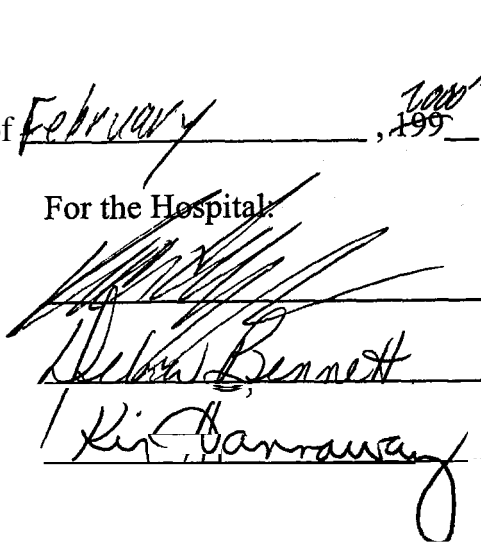 of February, 199 2000
For the Hospital:
Debra Bennett
Kim Hannaway